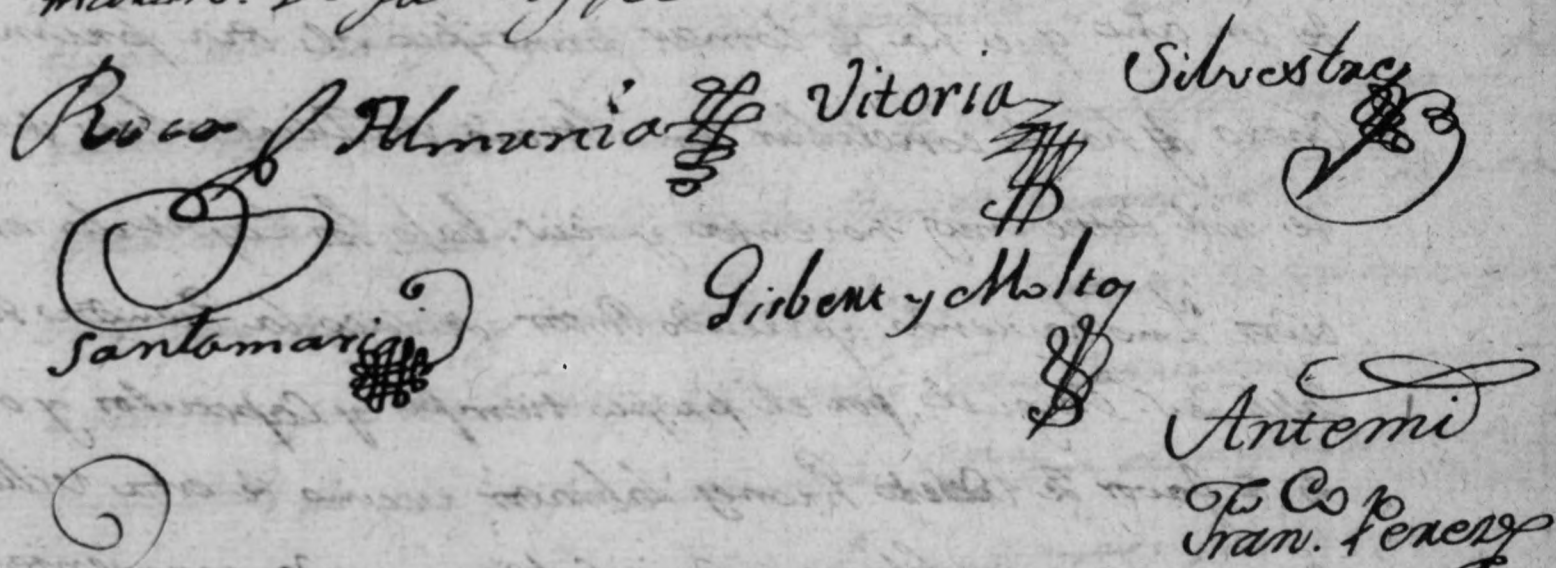 Roca Almunia Vitoria Silvestre
Santamaria Gisbert y Molto
Antemi
Fran. Perez